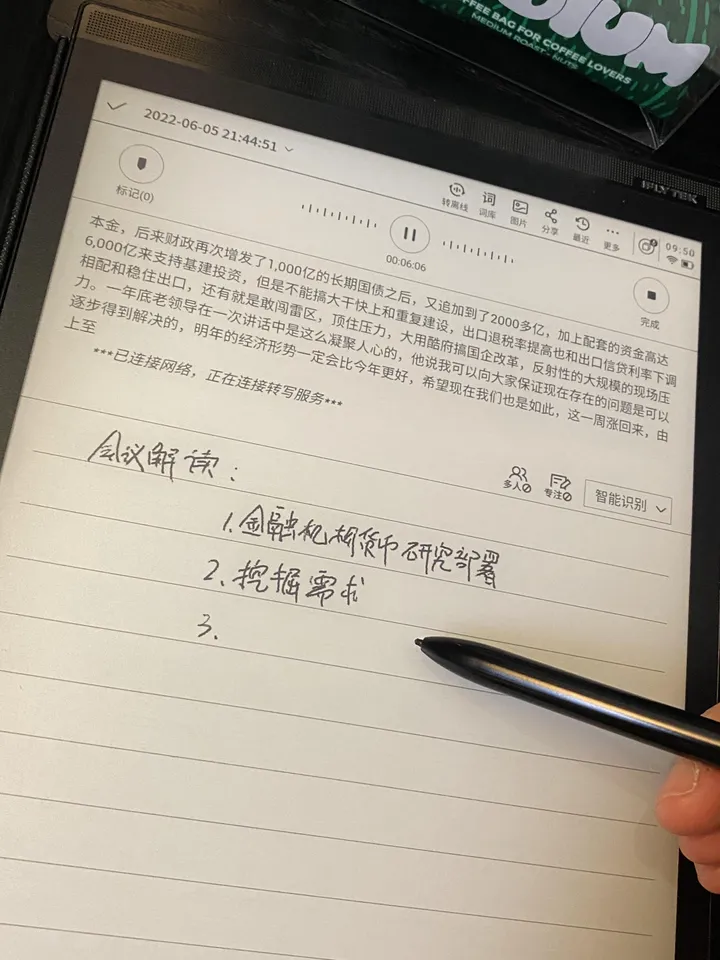 DIUM
COFFEE BAG FOR COFFEE LOVERS
MEDIUM ROAST - NUTS
iFLYTEK
2022-06-05 21:44:51
09:50
标记(0)
00:06:06
转离线 词库 图片 分享 最近 更多
完成
本金，后来财政再次增发了1,000亿的长期国债之后，又追加到了2000多亿，加上配套的资金高达
6,000亿来支持基建投资，但是不能搞大干快上和重复建设，出口退税率提高也和出口信贷利率下调
相配和稳住出口，还有就是敢闯雷区，顶住压力，大用酷府搞国企改革，反射性的大规模的现场压
力。一年底老领导在一次讲话中是这么凝聚人心的，他说我可以向大家保证现在存在的问题是可以
逐步得到解决的，明年的经济形势一定会比今年更好，希望现在我们也是如此，这一周涨回来，由
上至
***已连接网络，正在连接转写服务***
多人 专注 智能识别
会议解读：
1. 金融机构货币研究部署
2. 挖掘需求
3.